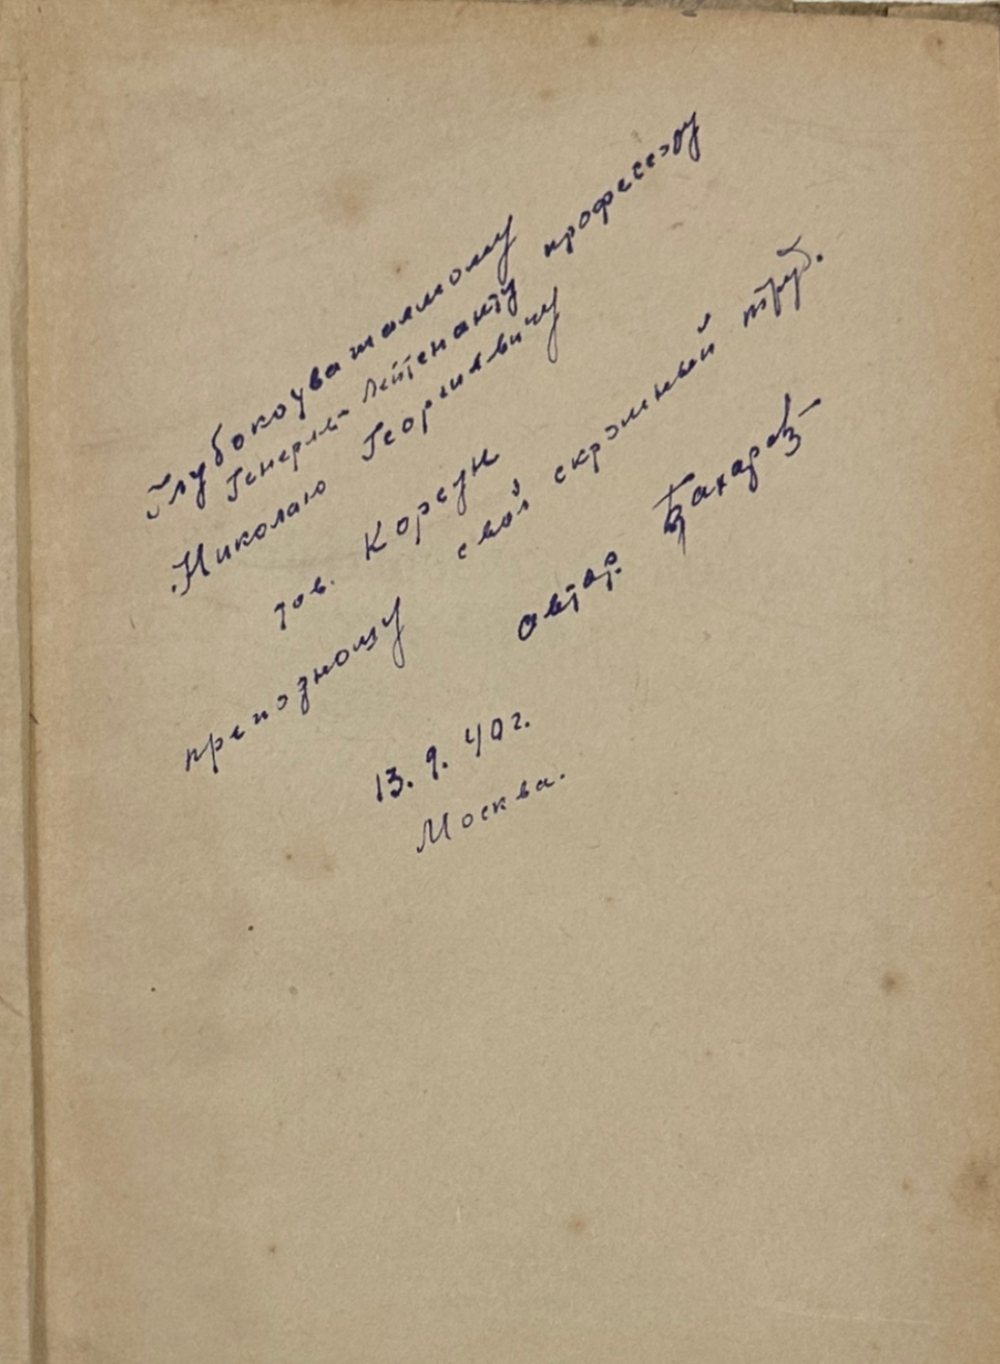 Глубокоуважаемому
Генерал-Лейтенанту профессору
Николаю Георгиевичу
тов. Корсун
преподношу свой скромный труд.
автор
13.9.40 г.
Москва.